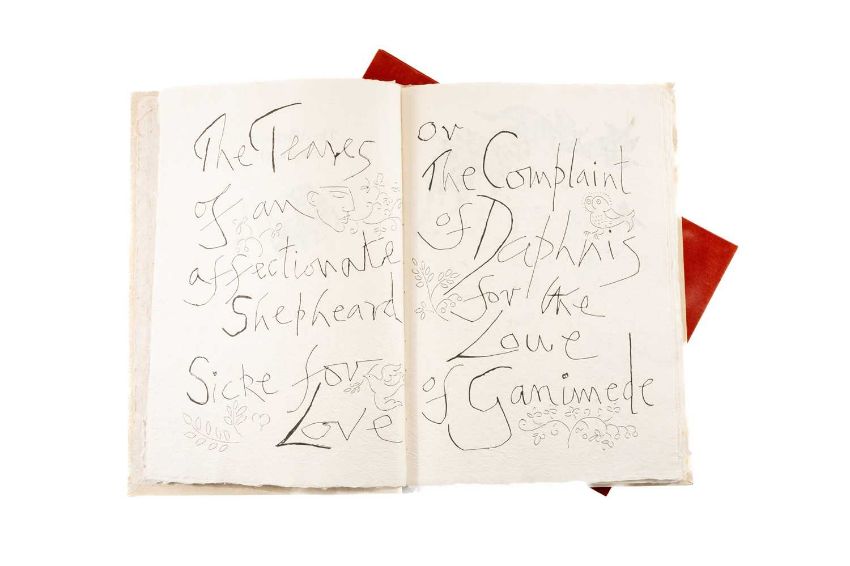 The Teares
of an
affectionate
Shepheard
Sicke for
Love
or
The Complaint
of Daphnis
for the
Loue
of Ganimede